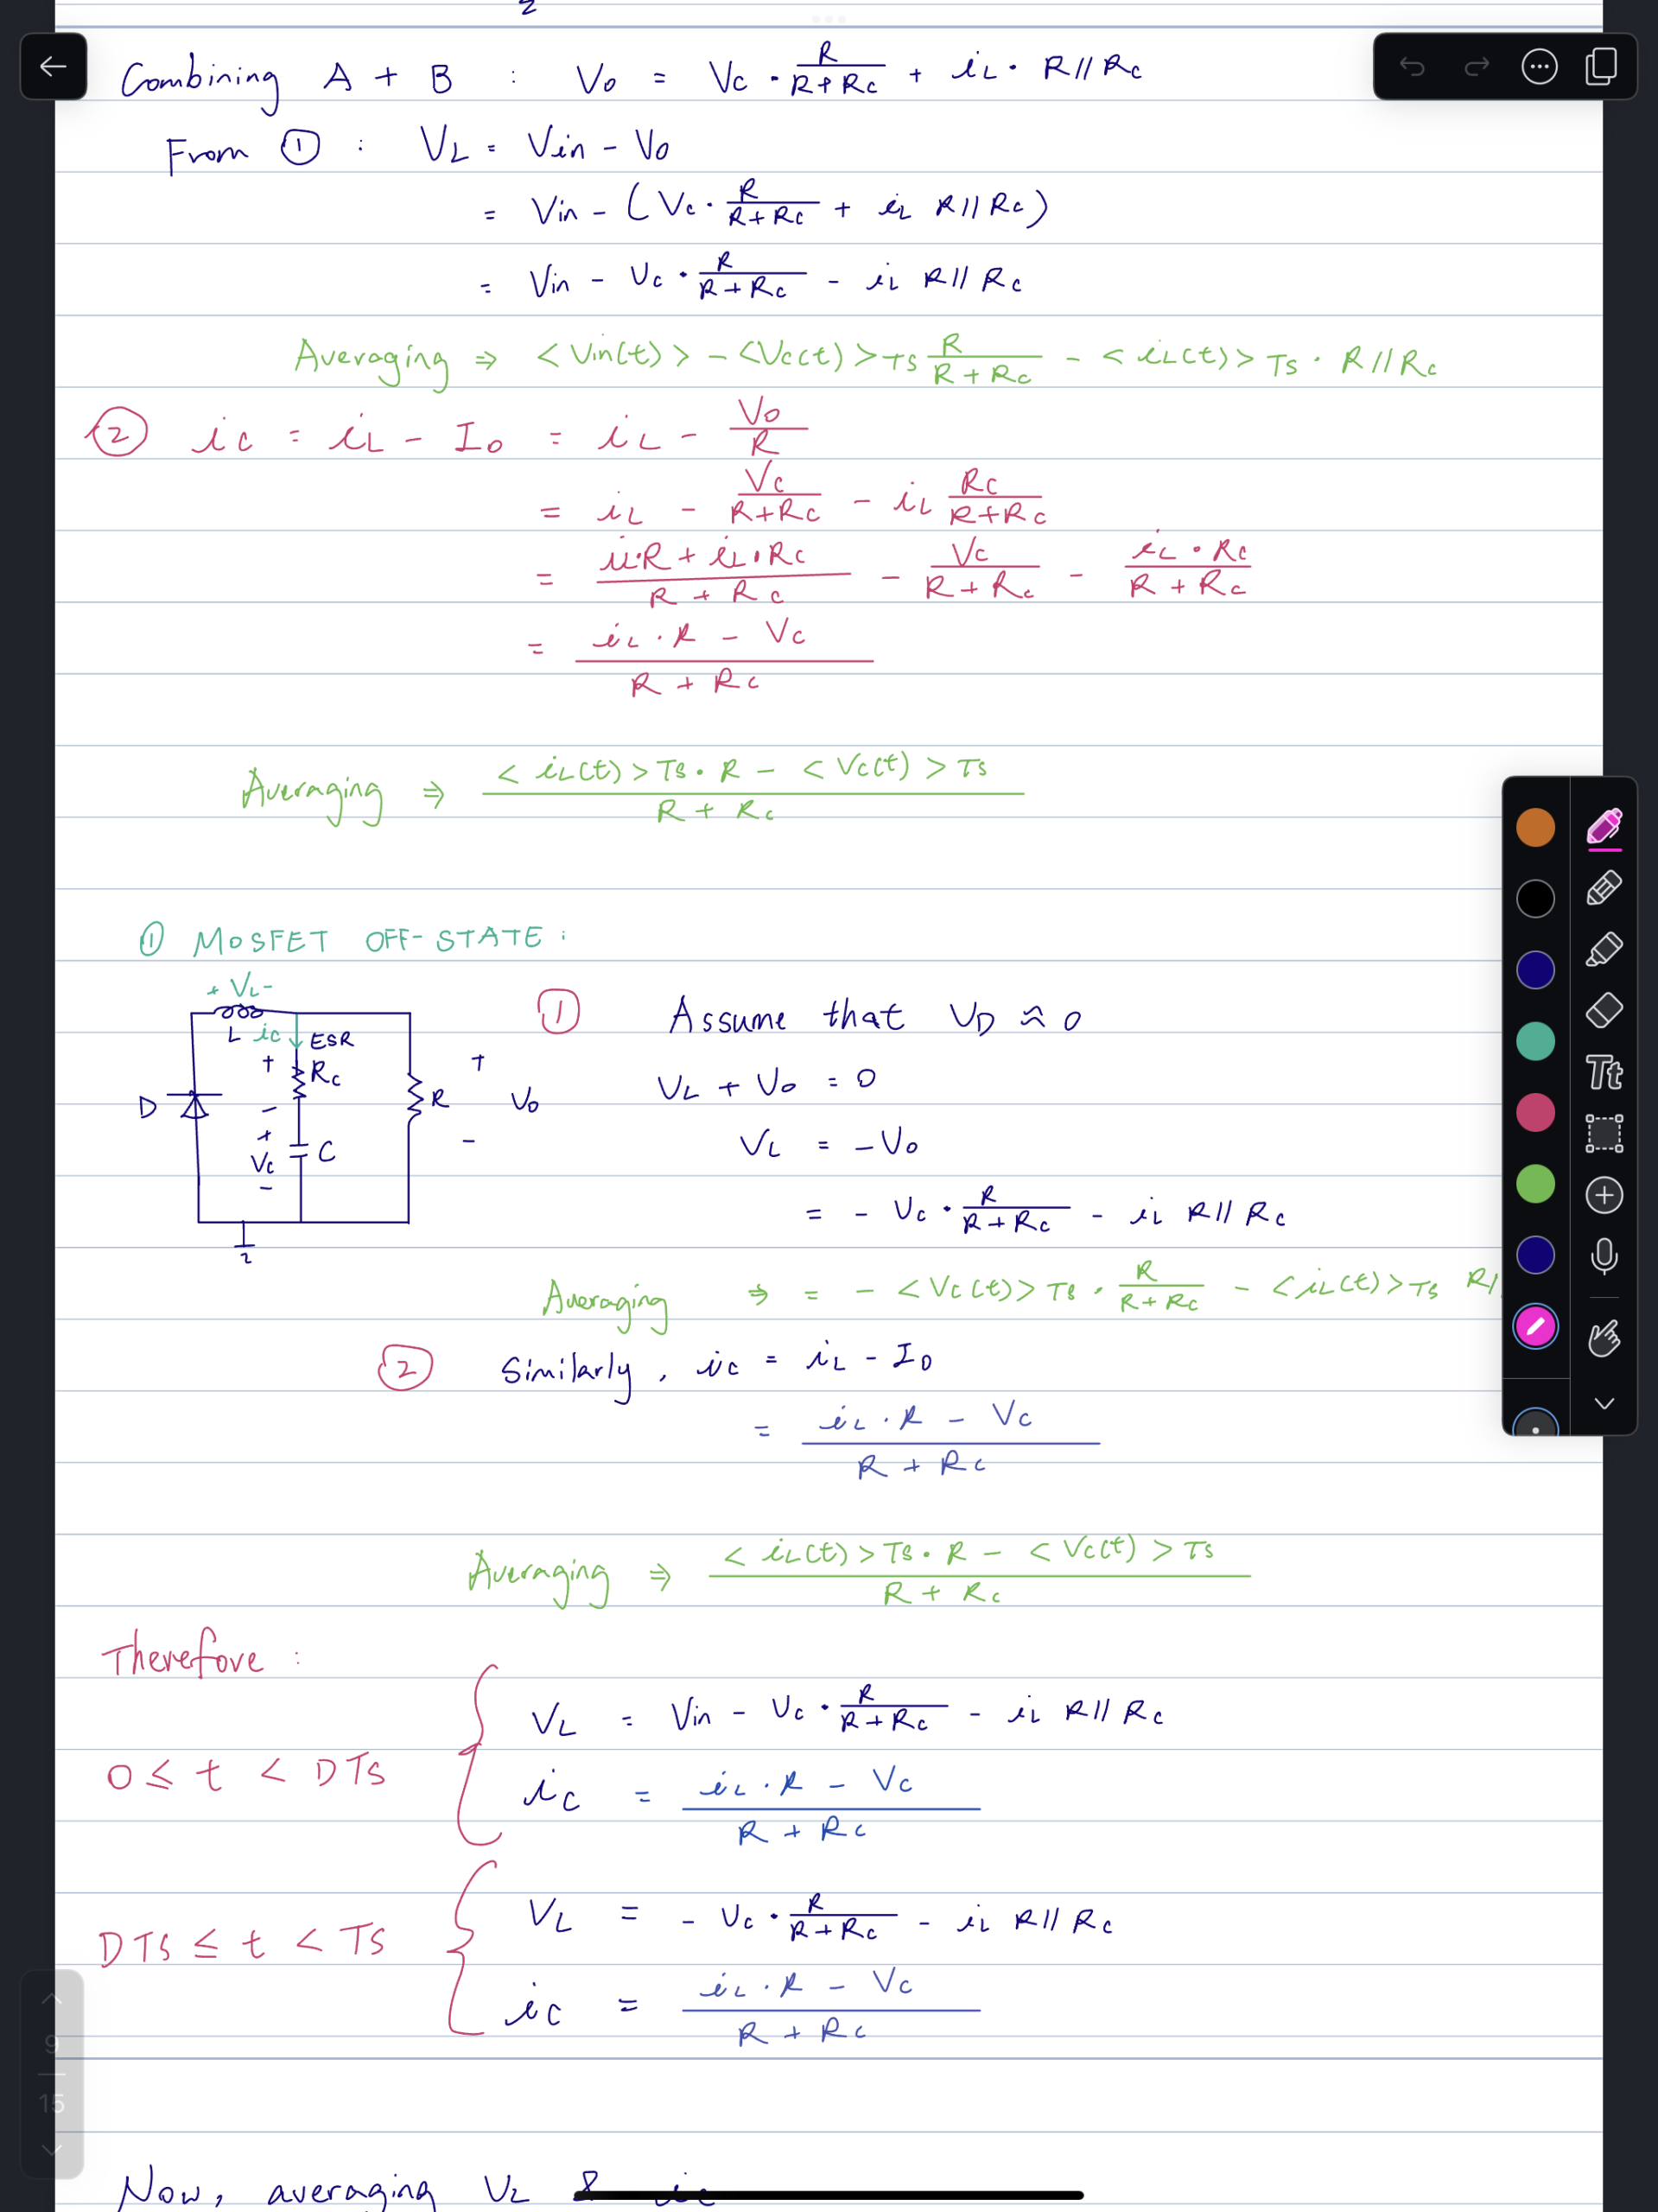 2
Combining A + B : Vo = Vc · R/(R+Rc) + iL · R // Rc
From ① : VL = Vin - Vo
= Vin - (Vc · R/(R+Rc) + iL R // Rc)
= Vin - Vc · R/(R+Rc) - iL R // Rc
Averaging ⇒ <Vin(t)> - <Vc(t)>Ts R/(R + Rc) - <iL(t)>Ts · R // Rc
② ic = iL - Io = iL - Vo/R
= iL - Vc/(R+Rc) - iL Rc/(R+Rc)
= (iL·R + iL·Rc)/(R + Rc) - Vc/(R + Rc) - iL · Rc/(R + Rc)
= (iL · R - Vc)/(R + Rc)
Averaging ⇒ (<iL(t)>Ts · R - <Vc(t)>Ts)/(R + Rc)
① MOSFET OFF-STATE :
+ VL -
L ic ESR
+ Rc
-
D
+
Vc C
-
R
+
Vo
-
① Assume that VD ≈ 0
VL + Vo = 0
VL = -Vo
= - Vc · R/(R+Rc) - iL R // Rc
Averaging ⇒ = - <Vc(t)>Ts · R/(R+Rc) - <iL(t)>Ts R/
② Similarly, ic = iL - Io
= (iL · R - Vc)/(R + Rc)
Averaging ⇒ (<iL(t)>Ts · R - <Vc(t)>Ts)/(R + Rc)
Therefore :
0 ≤ t < DTs { VL = Vin - Vc · R/(R+Rc) - iL R // Rc
ic = (iL · R - Vc)/(R + Rc)
DTs ≤ t < Ts { VL = - Vc · R/(R+Rc) - iL R // Rc
ic = (iL · R - Vc)/(R + Rc)
Now, averaging VL & ic
Tt
9
15